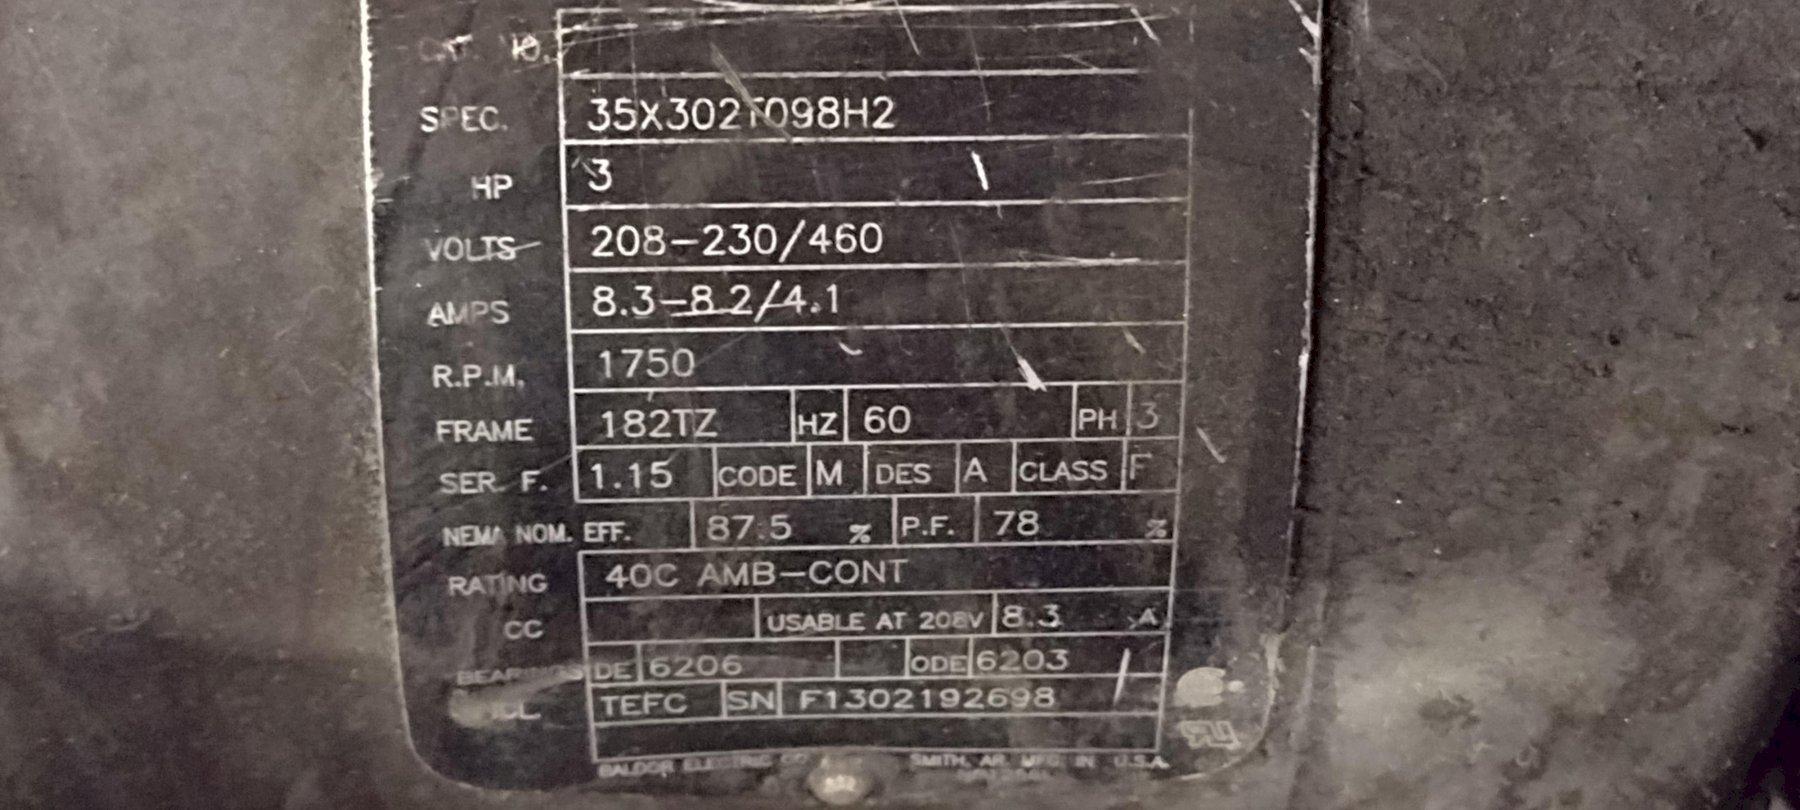 CAT. NO.
SPEC. 35X302T098H2
HP 3
VOLTS 208-230/460
AMPS 8.3-8.2/4.1
R.P.M. 1750
FRAME 182TZ HZ 60 PH 3
SER. F. 1.15 CODE M DES A CLASS F
NEMA NOM. EFF. 87.5 % P.F. 78 %
RATING 40C AMB-CONT
CC USABLE AT 208V 8.3 A
BEARINGS DE 6206 ODE 6203
ENCL TEFC SN F1302192698
BALDOR ELECTRIC CO SMITH, AR. MFG. IN U.S.A.